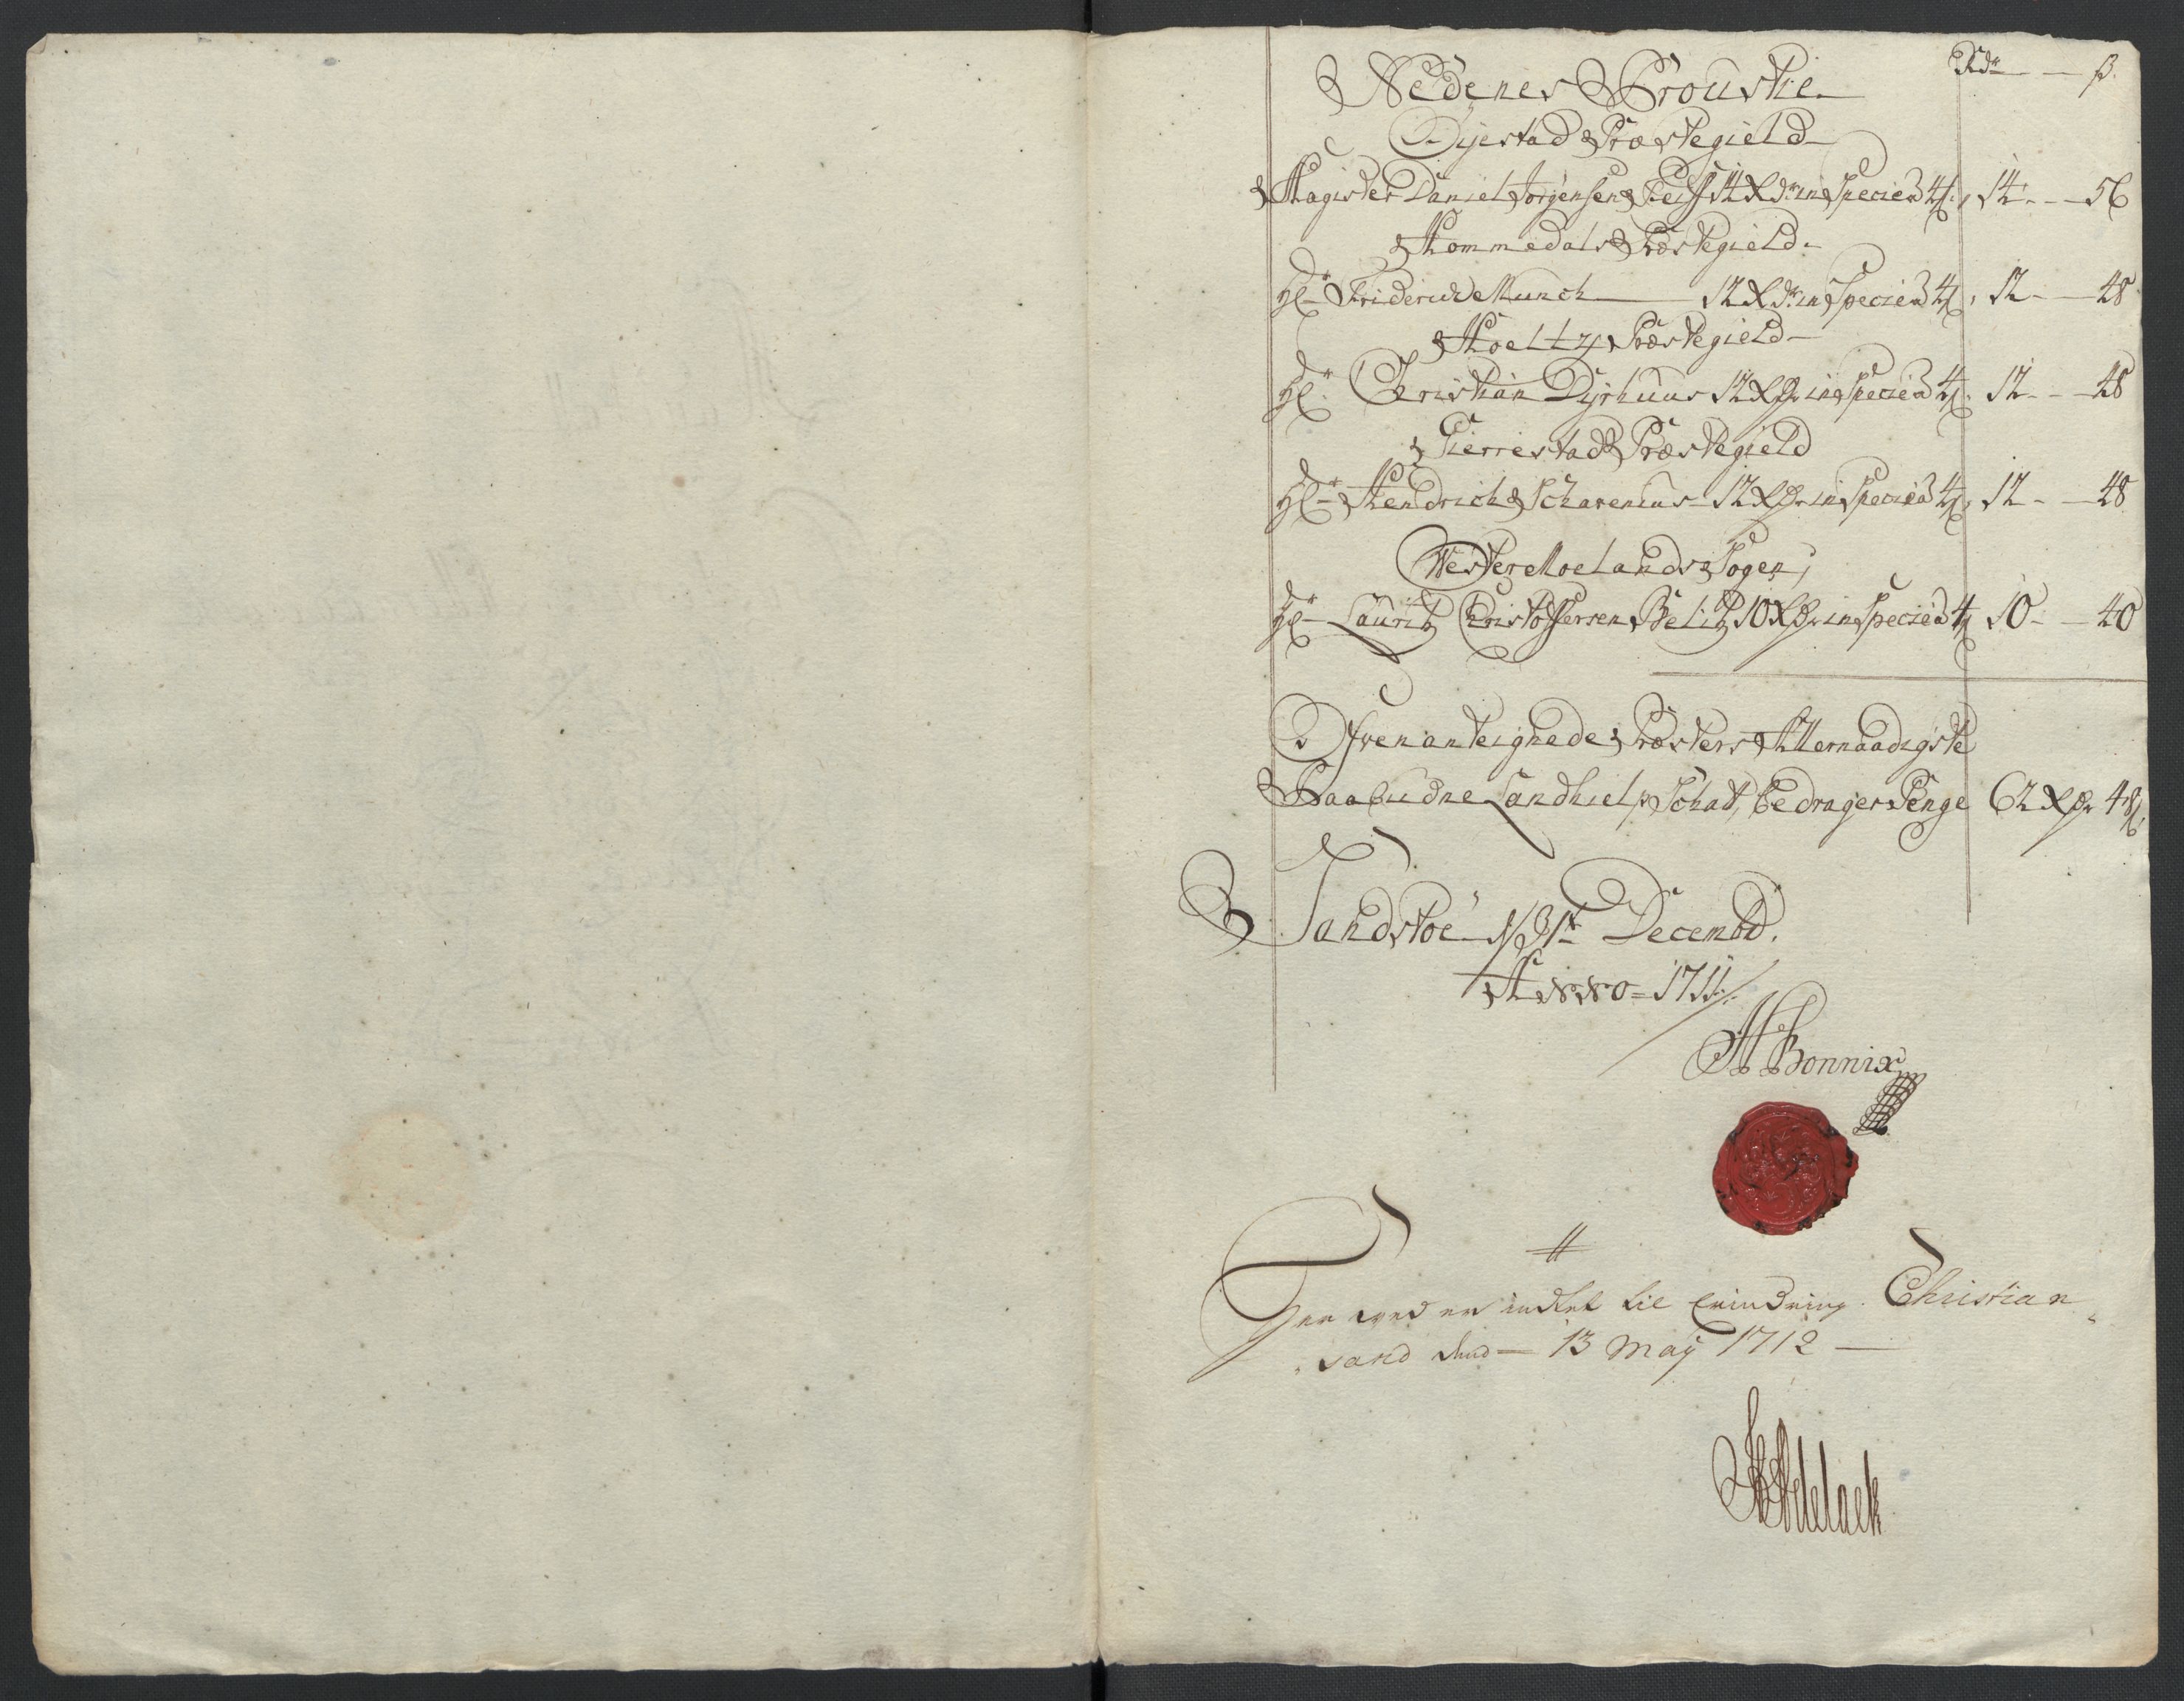 Rdr — ß.
Nedenes Proustie
Øyestad Præstegield
Magister Daniel Jørgensen 14 Rdr in Specie à 4 ß, 14 - - 56
Hommedals Præstegield
Hr Friderick Munch — 12 Rdr in Specie à 4 ß, 12 - - 48
Præstegield
Hr Christian Dyrhuus 12 Rdr in Specie à 4 ß. 12 - - 48
Præstegield
Hr Hendrich Scharenius 12 Rdr in Specie à 4 ß, 12 - - 48
Wester Moelands Sogen,
Hr Lauritz Christoffersen Belitz 10 Rdr in Specie à 4 ß 10 - - 40
Ofvenanteignede Præsters Allernaadigste
Paabudne Landhielp Schat, bedrager Penge 62 Rdr 48 ß,
Sandstøe d/ 31te Decembd.
Anno = 1711
H Bonnix
Her ved er indtet til Erindring. Christian
sand dend — 13 Maÿ 1712 —
Adelaer